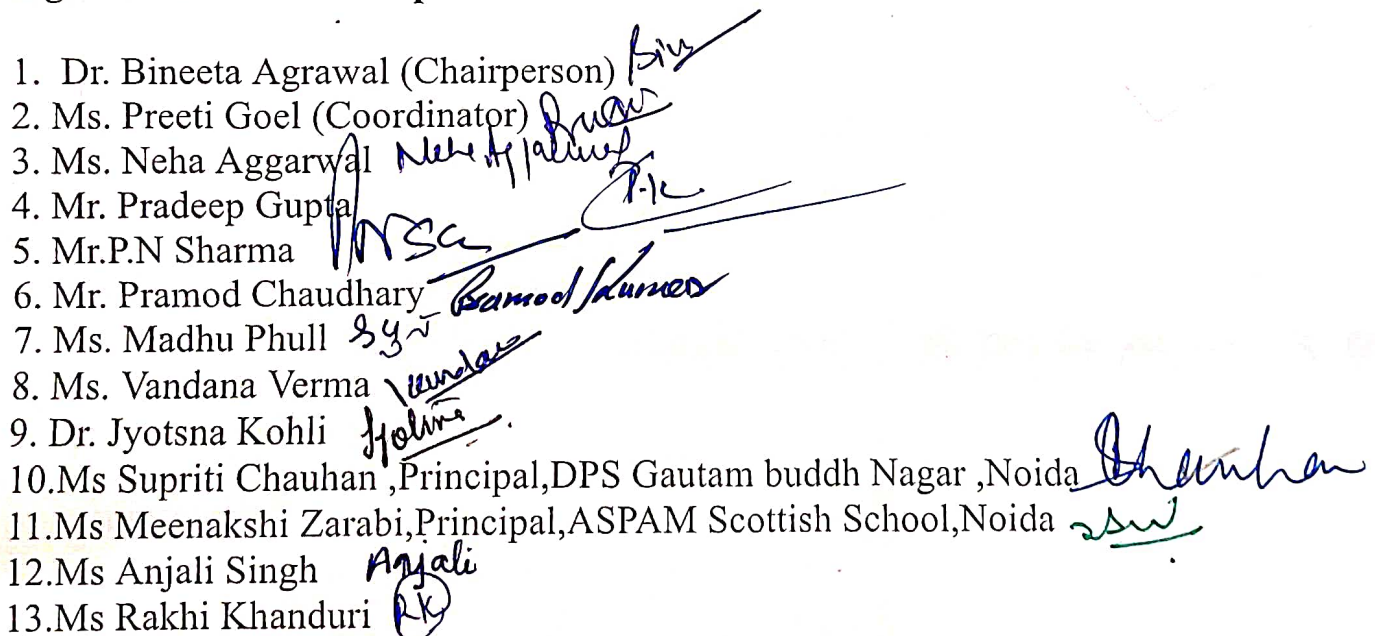 1. Dr. Bineeta Agrawal (Chairperson)
2. Ms. Preeti Goel (Coordinator)
3. Ms. Neha Aggarwal Neha Aggarwal
4. Mr. Pradeep Gupta P.K
5. Mr.P.N Sharma
6. Mr. Pramod Chaudhary Pramod Kumar
7. Ms. Madhu Phull
8. Ms. Vandana Verma Vandana
9. Dr. Jyotsna Kohli
10.Ms Supriti Chauhan ,Principal,DPS Gautam buddh Nagar ,Noida Chauhan
11.Ms Meenakshi Zarabi,Principal,ASPAM Scottish School,Noida
12.Ms Anjali Singh Anjali
13.Ms Rakhi Khanduri RK